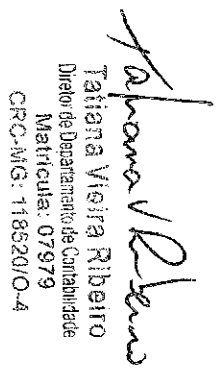 Tatiana V Ribeiro
Tatiana Vieira Ribeiro
Diretor de Departamento de Contabilidade
Matrícula: 07979
CRC-MG: 118520/O-4